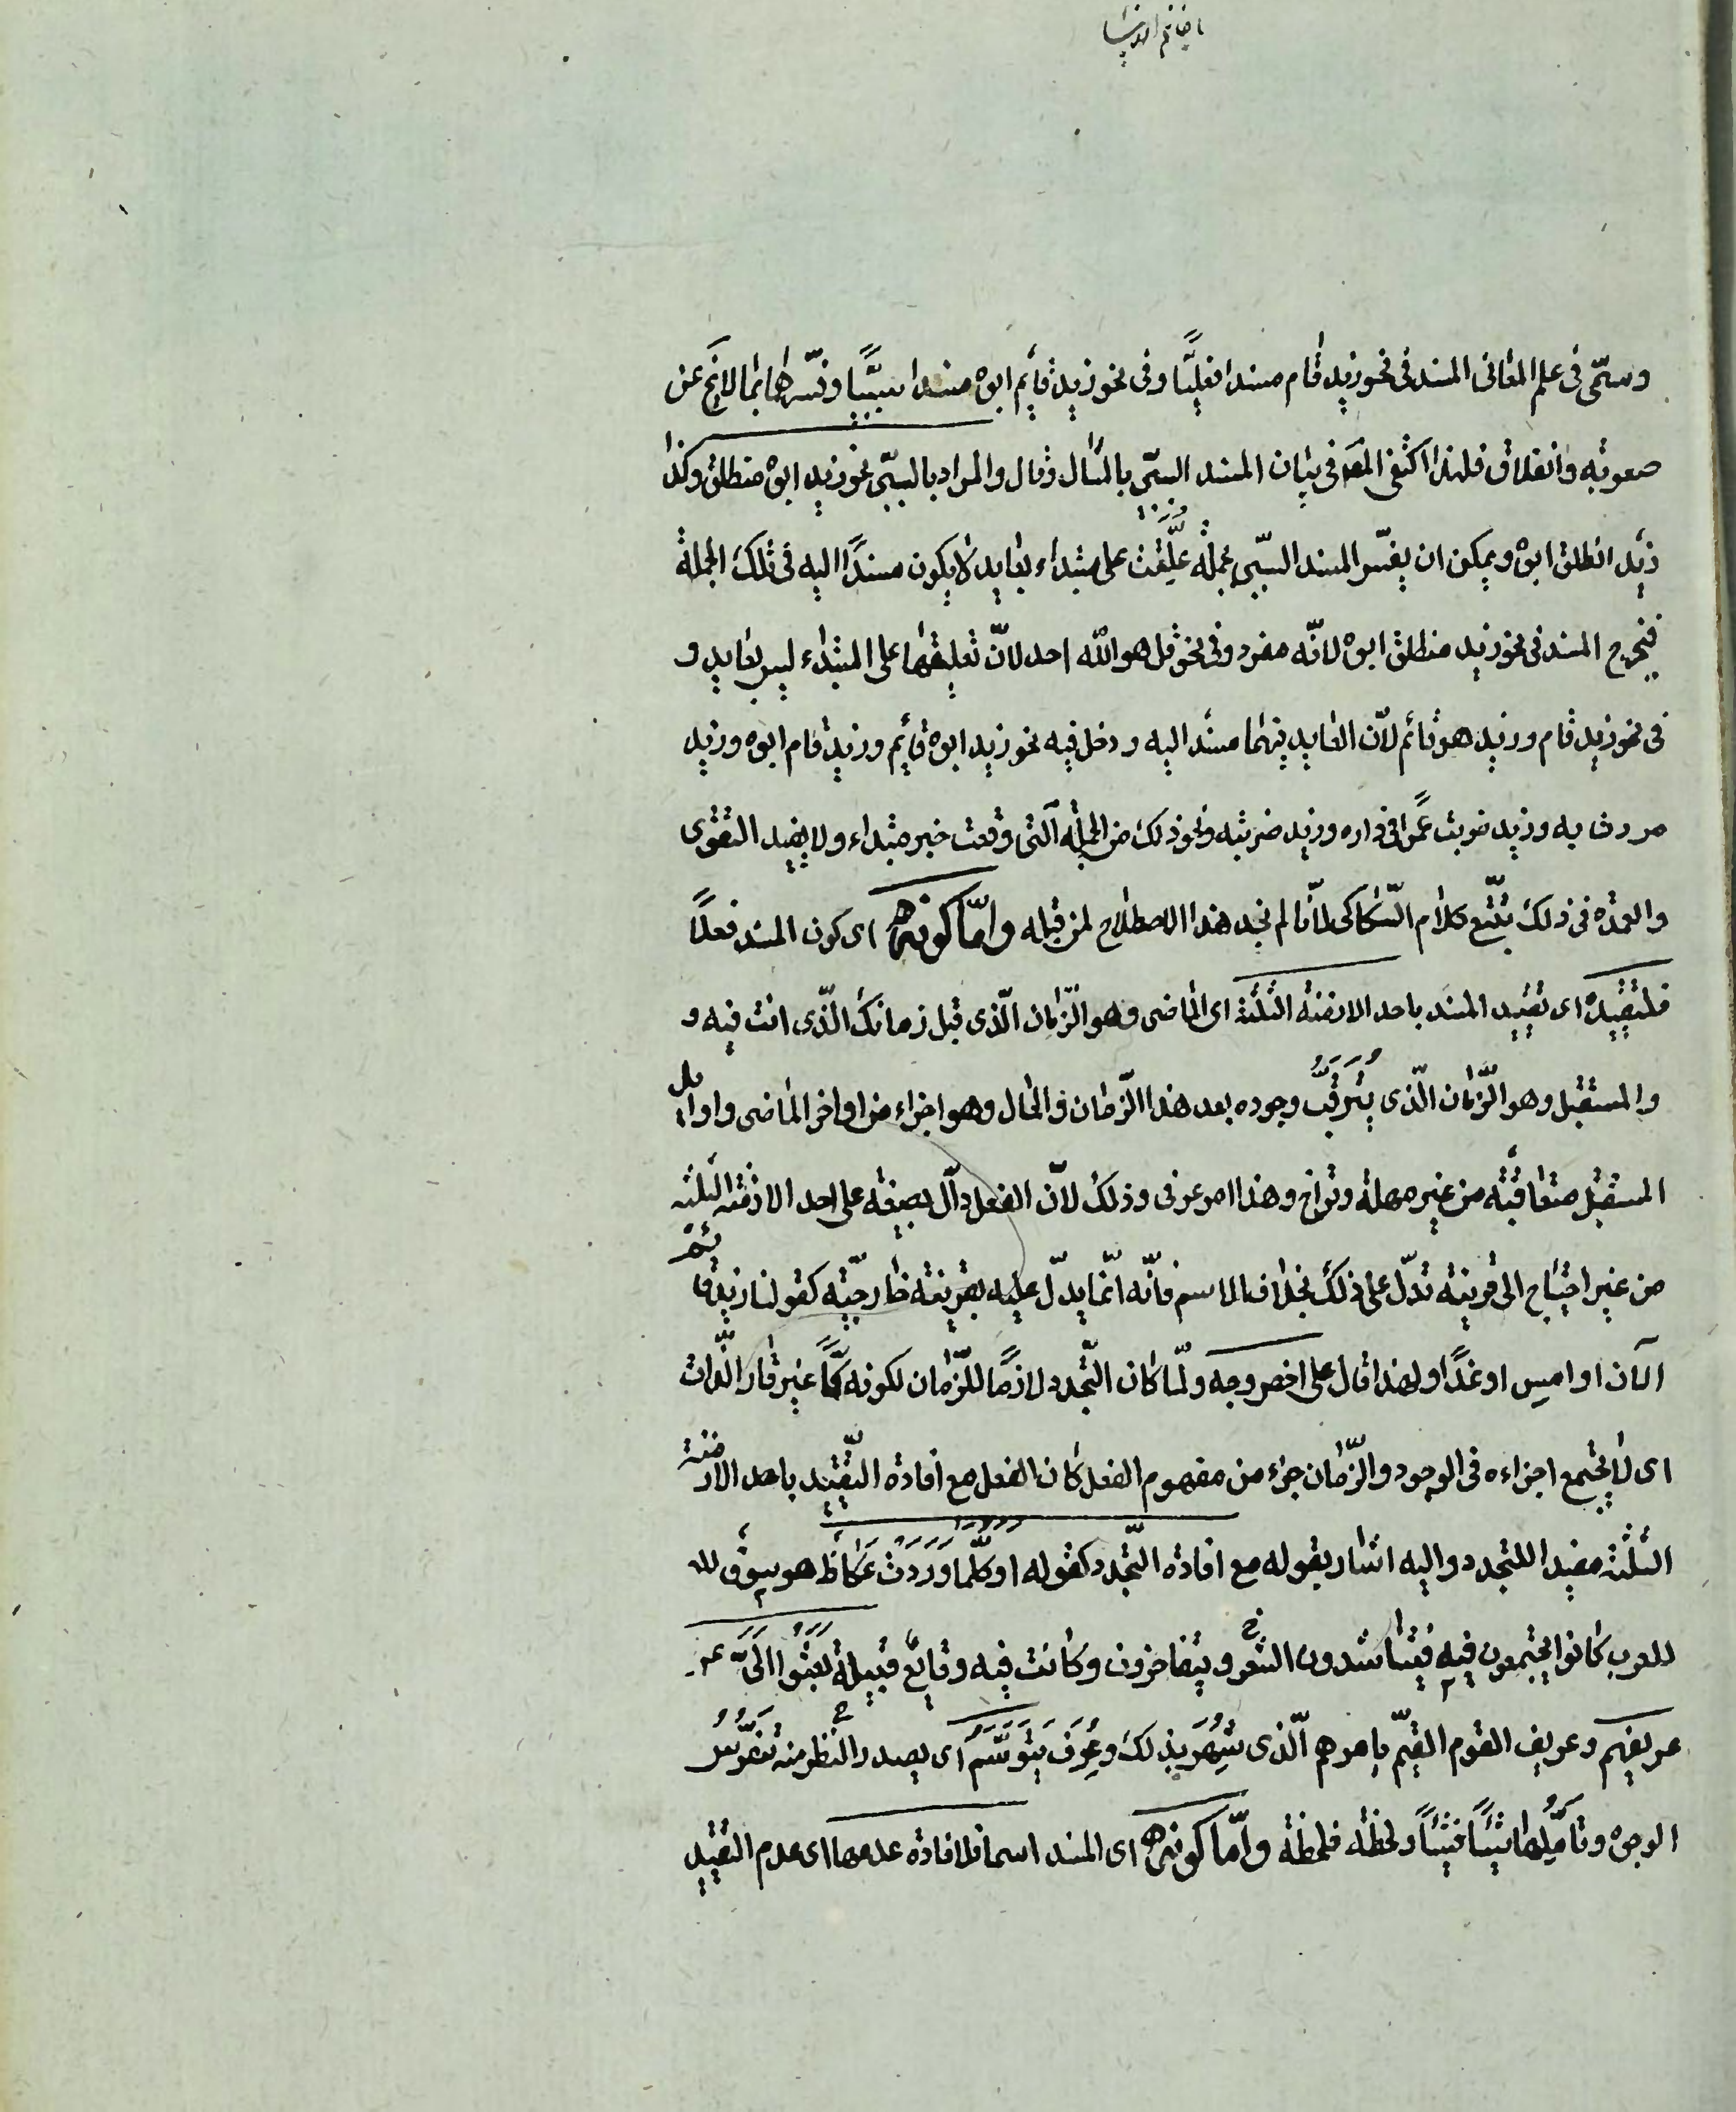 يا خاتم الانبيا
وسمّى فى علم المعانى المسند فى نحو زيد قام مسندا فعليّاً وفى نحو زيد قايم ابوه مسندا سببيّاً وفسّرهما بما لا يخ عن
صعوبه وانغلاق فلهذا اكتفى المصَ فى بيان المسند السببّى بالمثال وقال والمراد بالسببّى نحو زيد ابوه منطلق وكذا
زيد انطلق ابوه ويمكن ان يفسّر المسند السببّى بجملة عُلِّقَت على مبتداء بعايد لا يكون مسندًا اليه فى تلك الجملة
فيخرج المسند فى نحو زيد منطلق ابوه لانّه مفرد وفى نحو قل هو الله احد لانّ تعليقها على المبتداء ليس بعايد و
فى نحو زيد قام وزيد هو قائم لانّ العايد فيهما مسند اليه ودخل فيه نحو زيد ابوه قايم وزيد قام ابوه وزيد
مررت به وزيد ضربت عمراً فى داره وزيد ضربته ونحو ذلك من الجمله الّتى وقعت خبر مبتداء ولا يفيد التقوى
والعمده فى ذلك تتبّع كلام السّكاكى لانّا لم نجد هذا الاصطلاح لمن قبله وامّا كونه اى كون المسند فعلاً
فلتقييده اى تقييد المسند باحد الازمنه الثلثة اى الماضى وهو الزّمان الّذى قبل زمانك الّذى انت فيه و
والمستقبل وهو الزّمان الّذى يُتَرَقَّبُ وجوده بعد هذا الزّمان والحال وهو اجزاء من اواخر الماضى واوايل
المستقبل متعاقبه من غير مهلة وتراخ وهذا امر عرفى وذلك لانّ الفعل دالّ بصيغه على احد الازمنه الثلثه
من غير احتياج الى قرينه تدلّ على ذلك بخلاف الاسم فانّه انّما يدلّ عليه بقرينة خارجيّه كقولنا زيد قائم
الآن او امس او غداً ولهذا قال على اخصر وجه ولمّا كان التّجدد لازماً للزّمان لكونه كمّاً غير قار الذّات
اى لا يجتمع اجزاءه فى الوجود والزّمان جزء من مفهوم الفعل كان الفعل مع افادة التّقييد باحد الازمنة
الثلثة مفيدا للتجدد واليه اشار بقوله مع افادة التّجدد كقوله اَوَكلَّما وَرَدَت عُكاظَ هو سوق لل
للعرب كانوا يجتمعون فيه فيتناشدون الشّعر ويتفاخرون وكانت فيه وقايع قبيلةٌ بَعَثُوا اِلَىَّ عر
عريفهم وعريف القوم القيّم بامرهم الّذى شُهِرَ بذلك وعُرِفَ يَتَوَسَّمُ اى يصدر النظر منه تفرّسُ
الوجوه وتأمّلها شيئاً فشيئاً ولحظة فلحظة وامّا كونه اى المسند اسما فلافادة عدمهما اى عدم التقييد